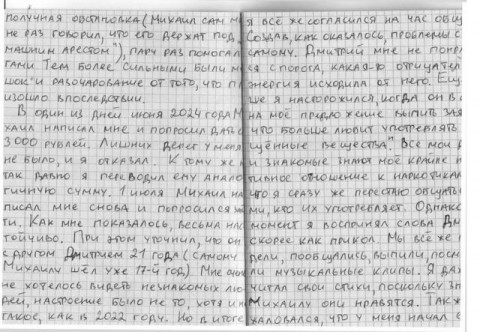 получная обстановка (Михаил сам мн
не раз говорил, что его держат под „до
машним арестом"), пару раз помогал
гами. Тем более сильными были м
шок и разочарование от того, что п
изошло впоследствии.
В один из дней июня 2024 года М
хаил написал мне и попросил дать
3000 рублей. Лишних денег у меня
не было, и я отказал. К тому же
так давно я переводил ему анало
гичную сумму. 1 июля Михаил на
писал мне снова и попросился
ти. Как мне показалось, весьма
тойчиво. При этом уточнил, что он
с другом Дмитрием 21 года (самому
Михаилу шёл уже 17-й год). Мне
не хотелось видеть незнакомых лю
дей, настроение было не то, хотя и н
такое, как в 2022 году. Но в итоге
я всё же согласился на час общ
создав, как оказалось, проблемы с
самому. Дмитрий мне не понр
ся с порога, какая-то отрицател
энергия исходила от него. Ещ
ше я насторожился, когда он в о
на моё предложение выпить
что больше любит употреблять
щённые вещества". Все мои
и знакомые знают моё крайне н
тивное отношение к наркотикам
что я сразу же перестаю общатьс
ми, кто их употребляет. Однако
момент я воспринял слова Дм
скорее как прикол. Мы всё же
дели, пообщались, выпили, посм
ли музыкальные клипы. Я да
читал свои стихи, поскольку зн
Михаилу они нравятся. Такж
жаловался, что у меня начал